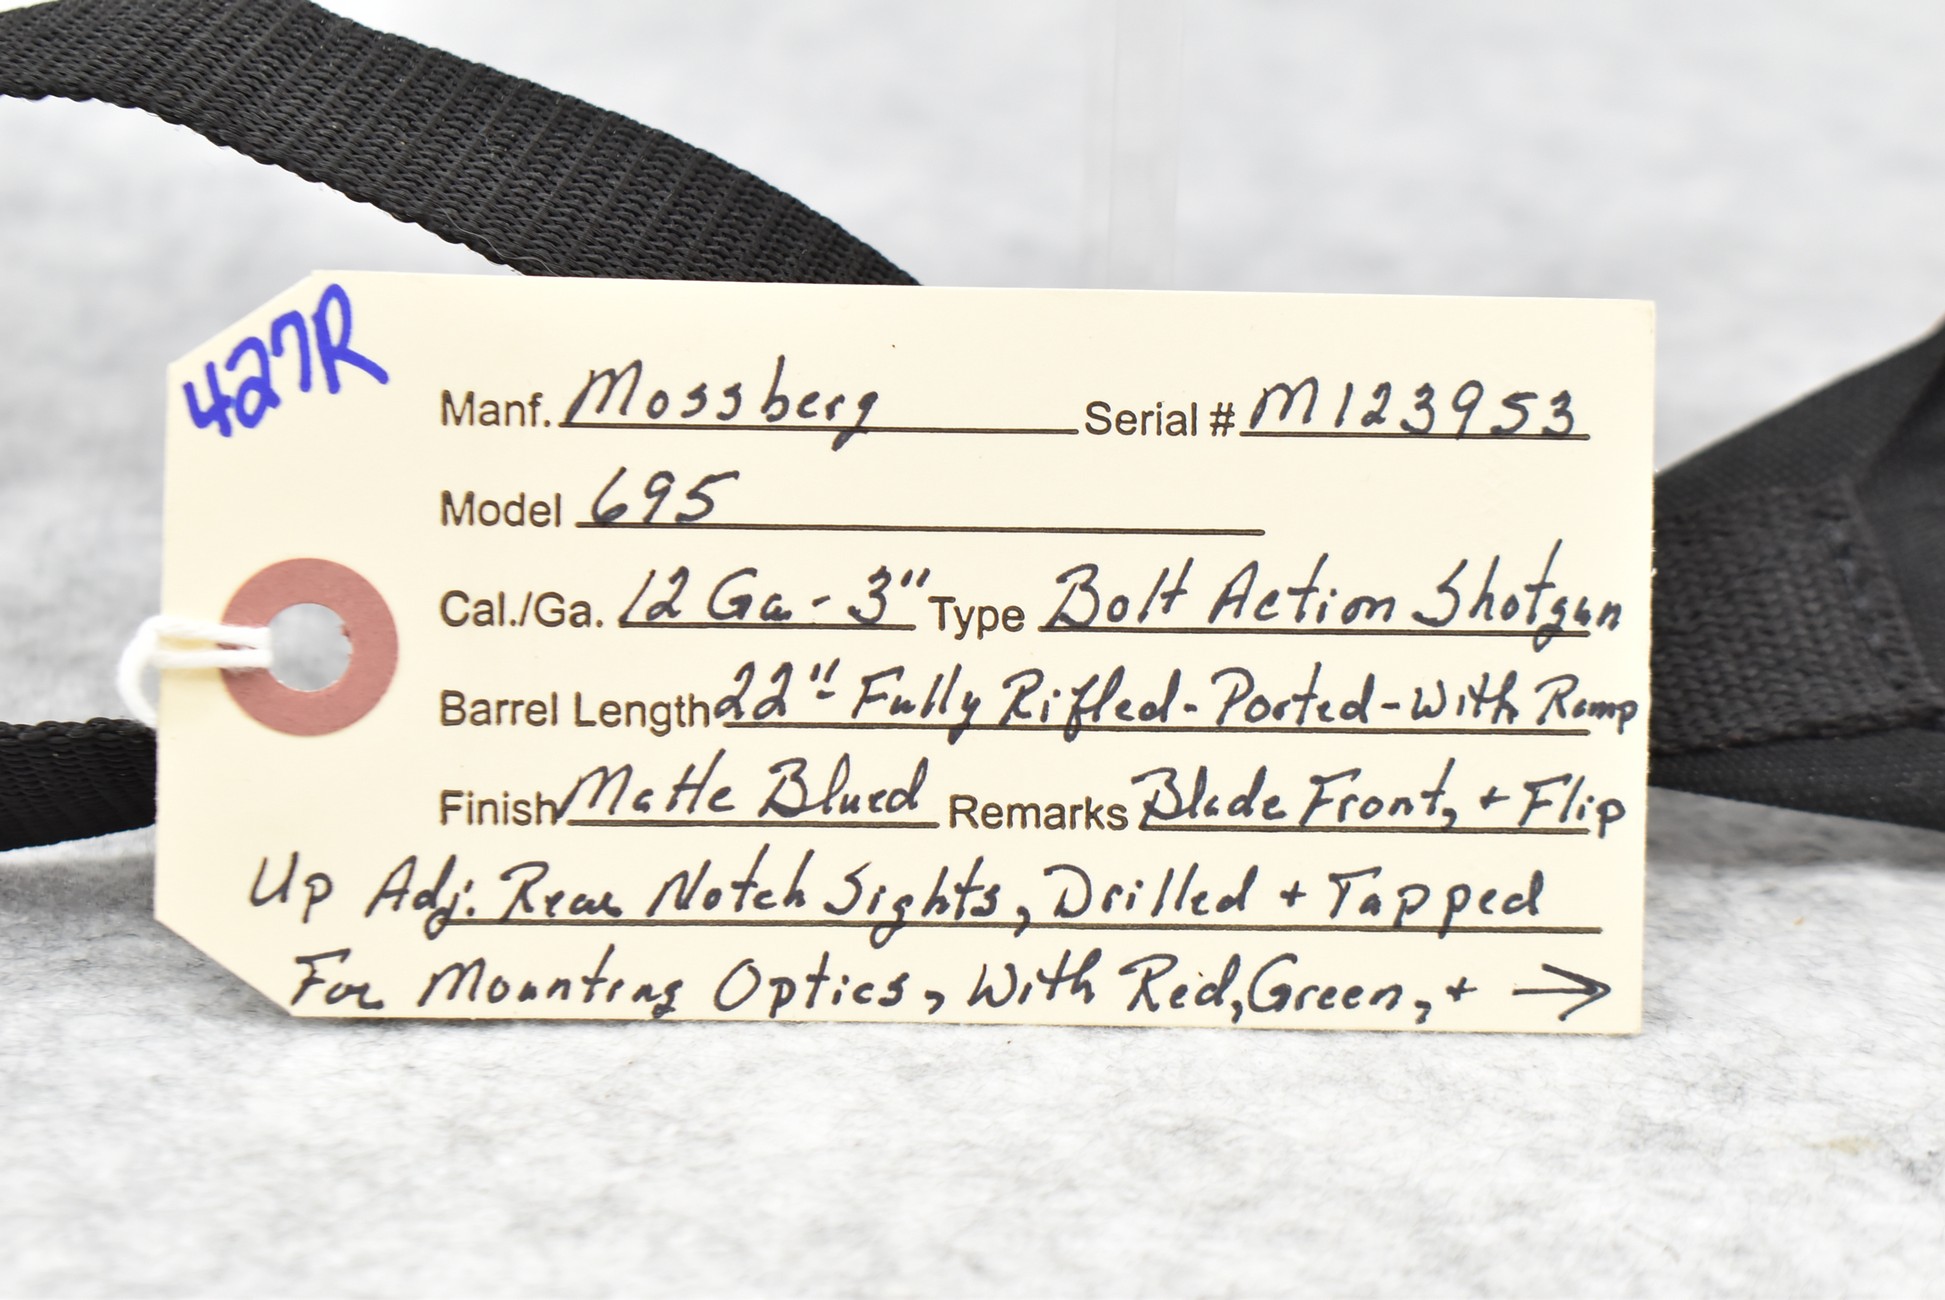 427R
Manf. Mossberg Serial # M123953
Model 695
Cal./Ga. 12 Ga - 3" Type Bolt Action Shotgun
Barrel Length 22" - Fully Rifled - Ported - With Ramp
Finish Matte Blued Remarks Blade Front, + Flip
Up Adj. Rear Notch Sights, Drilled + Tapped
For Mounting Optics, With Red, Green, + →